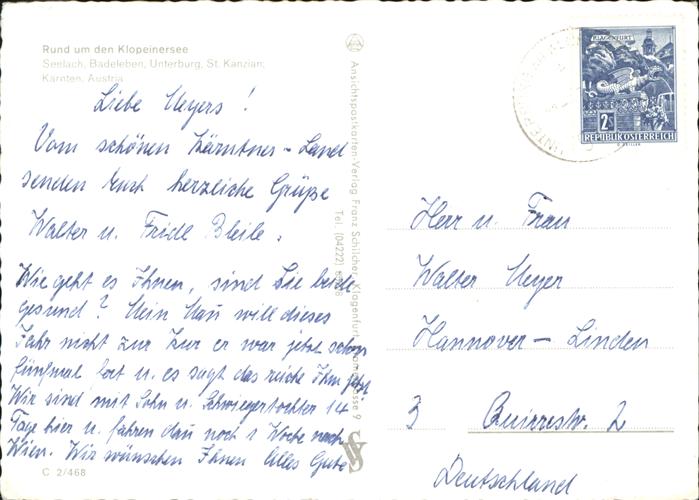 Rund um den Klopeinersee
Seelach, Badeleben, Unterburg, St. Kanzian;
Kärnten, Austria
Liebe Meyers!
Vom schönen Kärntner-Land
senden Euch herzliche Grüße
Walter u. Fridl Bleile.
Wie geht es Ihnen, sind Sie beide
gesund? Mein Mañ will dieses
Jahr nicht zur Kur er war jetzt schon
fünfmal fort u. es sagt das reiche Ihm jetzt
Wir sind mit Sohn u. Schwiegertochter 14
Tage hier u. fahren dañ noch 1 Woche nach
Wien. Wir wünschen Ihnen Alles Gute
C 2/468
Ansichtspostkarten-Verlag Franz Schilcher, Klagenfurt
9
Tel. (04222)
KLAGENFURT
2S
REPUBLIK ÖSTERREICH
Herr u. Frau
Walter Meyer
Hannover-Linden
3 Quirrestr. 2
Deutschland